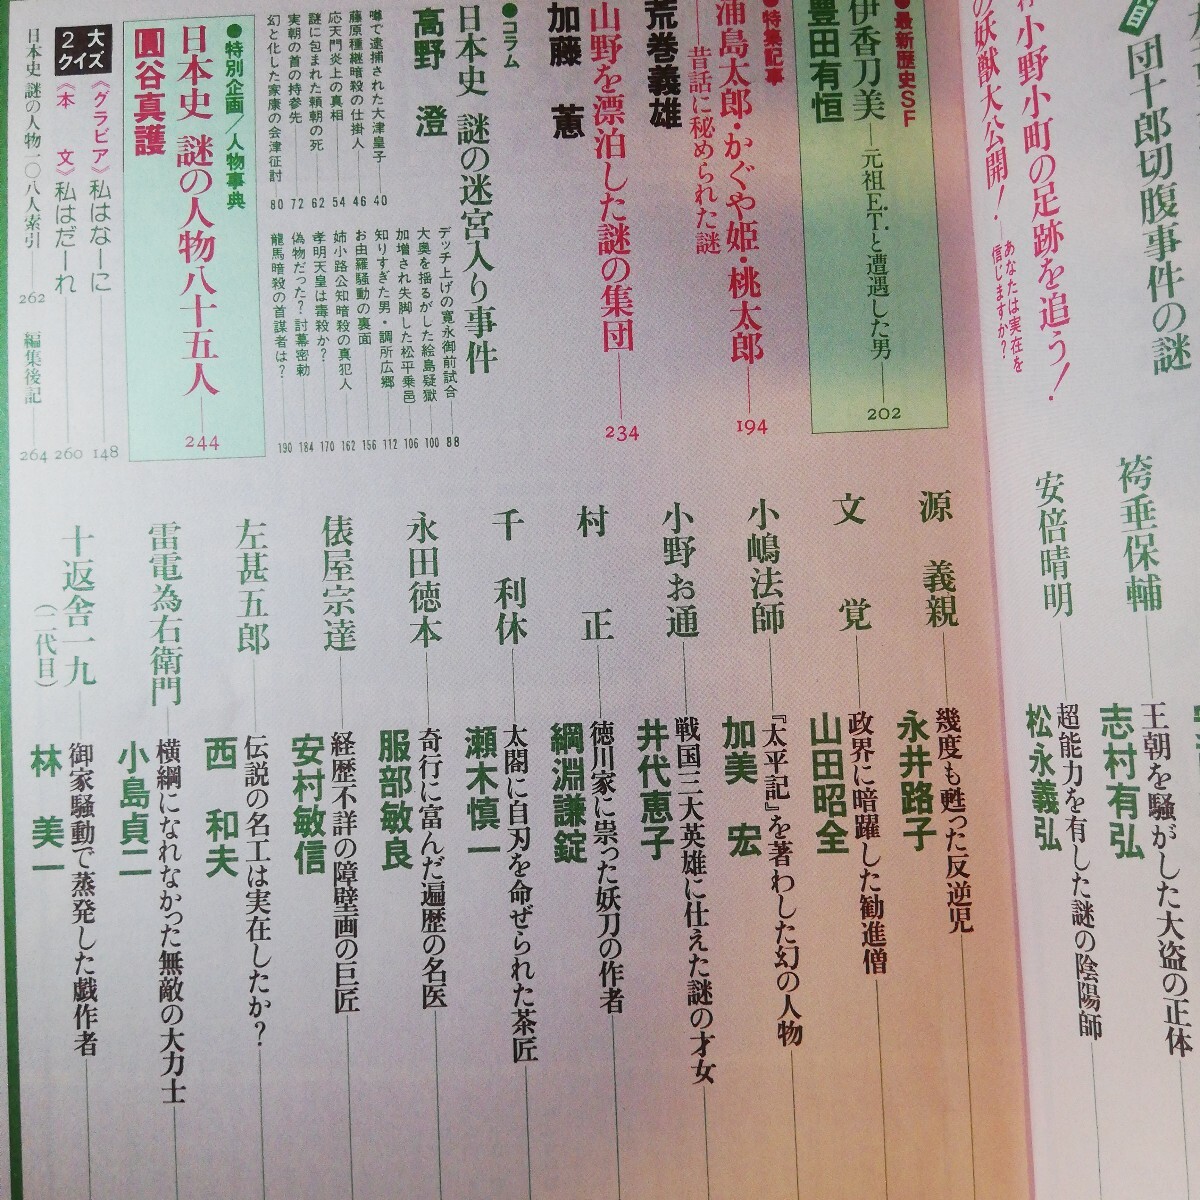 団十郎切腹事件の謎
小野小町の足跡を追う！
の妖獣大公開！
あなたは実在を
信じますか？
●最新歴史SF
伊香刀美―元祖E.T.と遭遇した男―202
豊田有恒
●特集記事
浦島太郎・かぐや姫・桃太郎―194
―昔話に秘められた謎
荒巻義雄
山野を漂泊した謎の集団―234
加藤　蕙
●コラム
日本史 謎の迷宮入り事件
高野　澄
噂で逮捕された大津皇子―40
藤原種継暗殺の仕掛人―46
応天門炎上の真相―54
謎に包まれた頼朝の死―62
実朝の首の持参先―72
幻と化した家康の会津征討 80
デッチ上げの寛永御前試合―88
大奥を揺るがした絵島疑獄―100
加増され失脚した松平乗邑―106
知りすぎた男・調所広郷―112
お由羅騒動の裏面―156
姉小路公知暗殺の真犯人―162
孝明天皇は毒殺か？―170
偽物だった？討幕密勅―184
龍馬暗殺の首謀者は？―190
●特別企画／人物事典
日本史 謎の人物八十五人―244
圓谷真護
大クイズ2
《グラビア》私はなーに―148
《本　文》私はだーれ―260
日本史 謎の人物一〇八人索引―262
編集後記―264
袴垂保輔―王朝を騒がした大盗の正体
志村有弘
安倍晴明―超能力を有した謎の陰陽師
松永義弘
源　義親―幾度も甦った反逆児
永井路子
文　覚―政界に暗躍した勧進僧
山田昭全
小嶋法師―『太平記』を著わした幻の人物
加美　宏
小野お通―戦国三大英雄に仕えた謎の才女
井代恵子
村　正―徳川家に祟った妖刀の作者
綱淵謙錠
千　利休―太閤に自刃を命ぜられた茶匠
瀬木慎一
永田徳本―奇行に富んだ遍歴の名医
服部敏良
俵屋宗達―経歴不詳の障壁画の巨匠
安村敏信
左甚五郎―伝説の名工は実在したか？
西　和夫
雷電為右衛門―横綱になれなかった無敵の大力士
小島貞二
十返舎一九（二代目）―御家騒動で蒸発した戯作者
林　美一